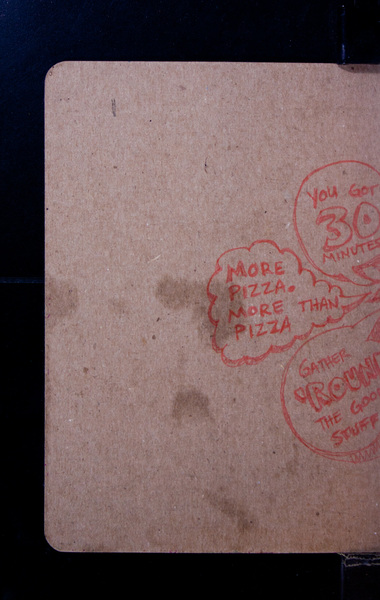 YOU GOT
30
MINUTES
MORE
PIZZA.
MORE THAN
PIZZA
GATHER
'ROUND
THE GOOD
STUFF